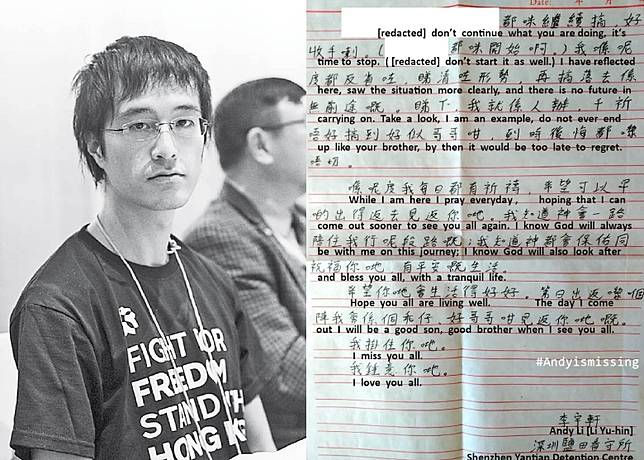 FIGHT FOR
FREEDOM
STAND
HONG
Date:
都咪繼續搞，好
[redacted] don't continue what you are doing, it's
收手喇。( 都咪開始啊。) 我喺呢
time to stop. ( [redacted] don't start it as well.) I have reflected
度都反省咗，睇清咗形勢，再搞落去係
here, saw the situation more clearly, and there is no future in
無前途嘅，睇下，我就係人辦，千祈
carrying on. Take a look, I am an example, do not ever end
唔好搞到好似哥哥咁，到時後悔都嚟
up like your brother, by then it would be too late to regret.
唔切。
喺呢度我每日都有祈禱，希望可以早
While I am here I pray everyday, hoping that I can
啲出得返去見返你哋。我知道神會一路
come out sooner to see you all again. I know God will always
陪住我行呢段路嘅；我知道神都會保佑同
be with me on this journey; I know God will also look after
祝福你哋，有平安嘅生活。
and bless you all, with a tranquil life.
希望你哋會生活得好好。第日出返嚟個
Hope you all are living well. The day I come
陣我會係個乖仔，好哥哥咁見返你哋嘅。
out I will be a good son, good brother when I see you all.
我掛住你哋。
#Andyismissing
I miss you all.
我鍾意你哋。
I love you all.
李宇軒
Andy Li [Li Yu-hin]
深圳鹽田看守所
Shenzhen Yantian Detention Centre